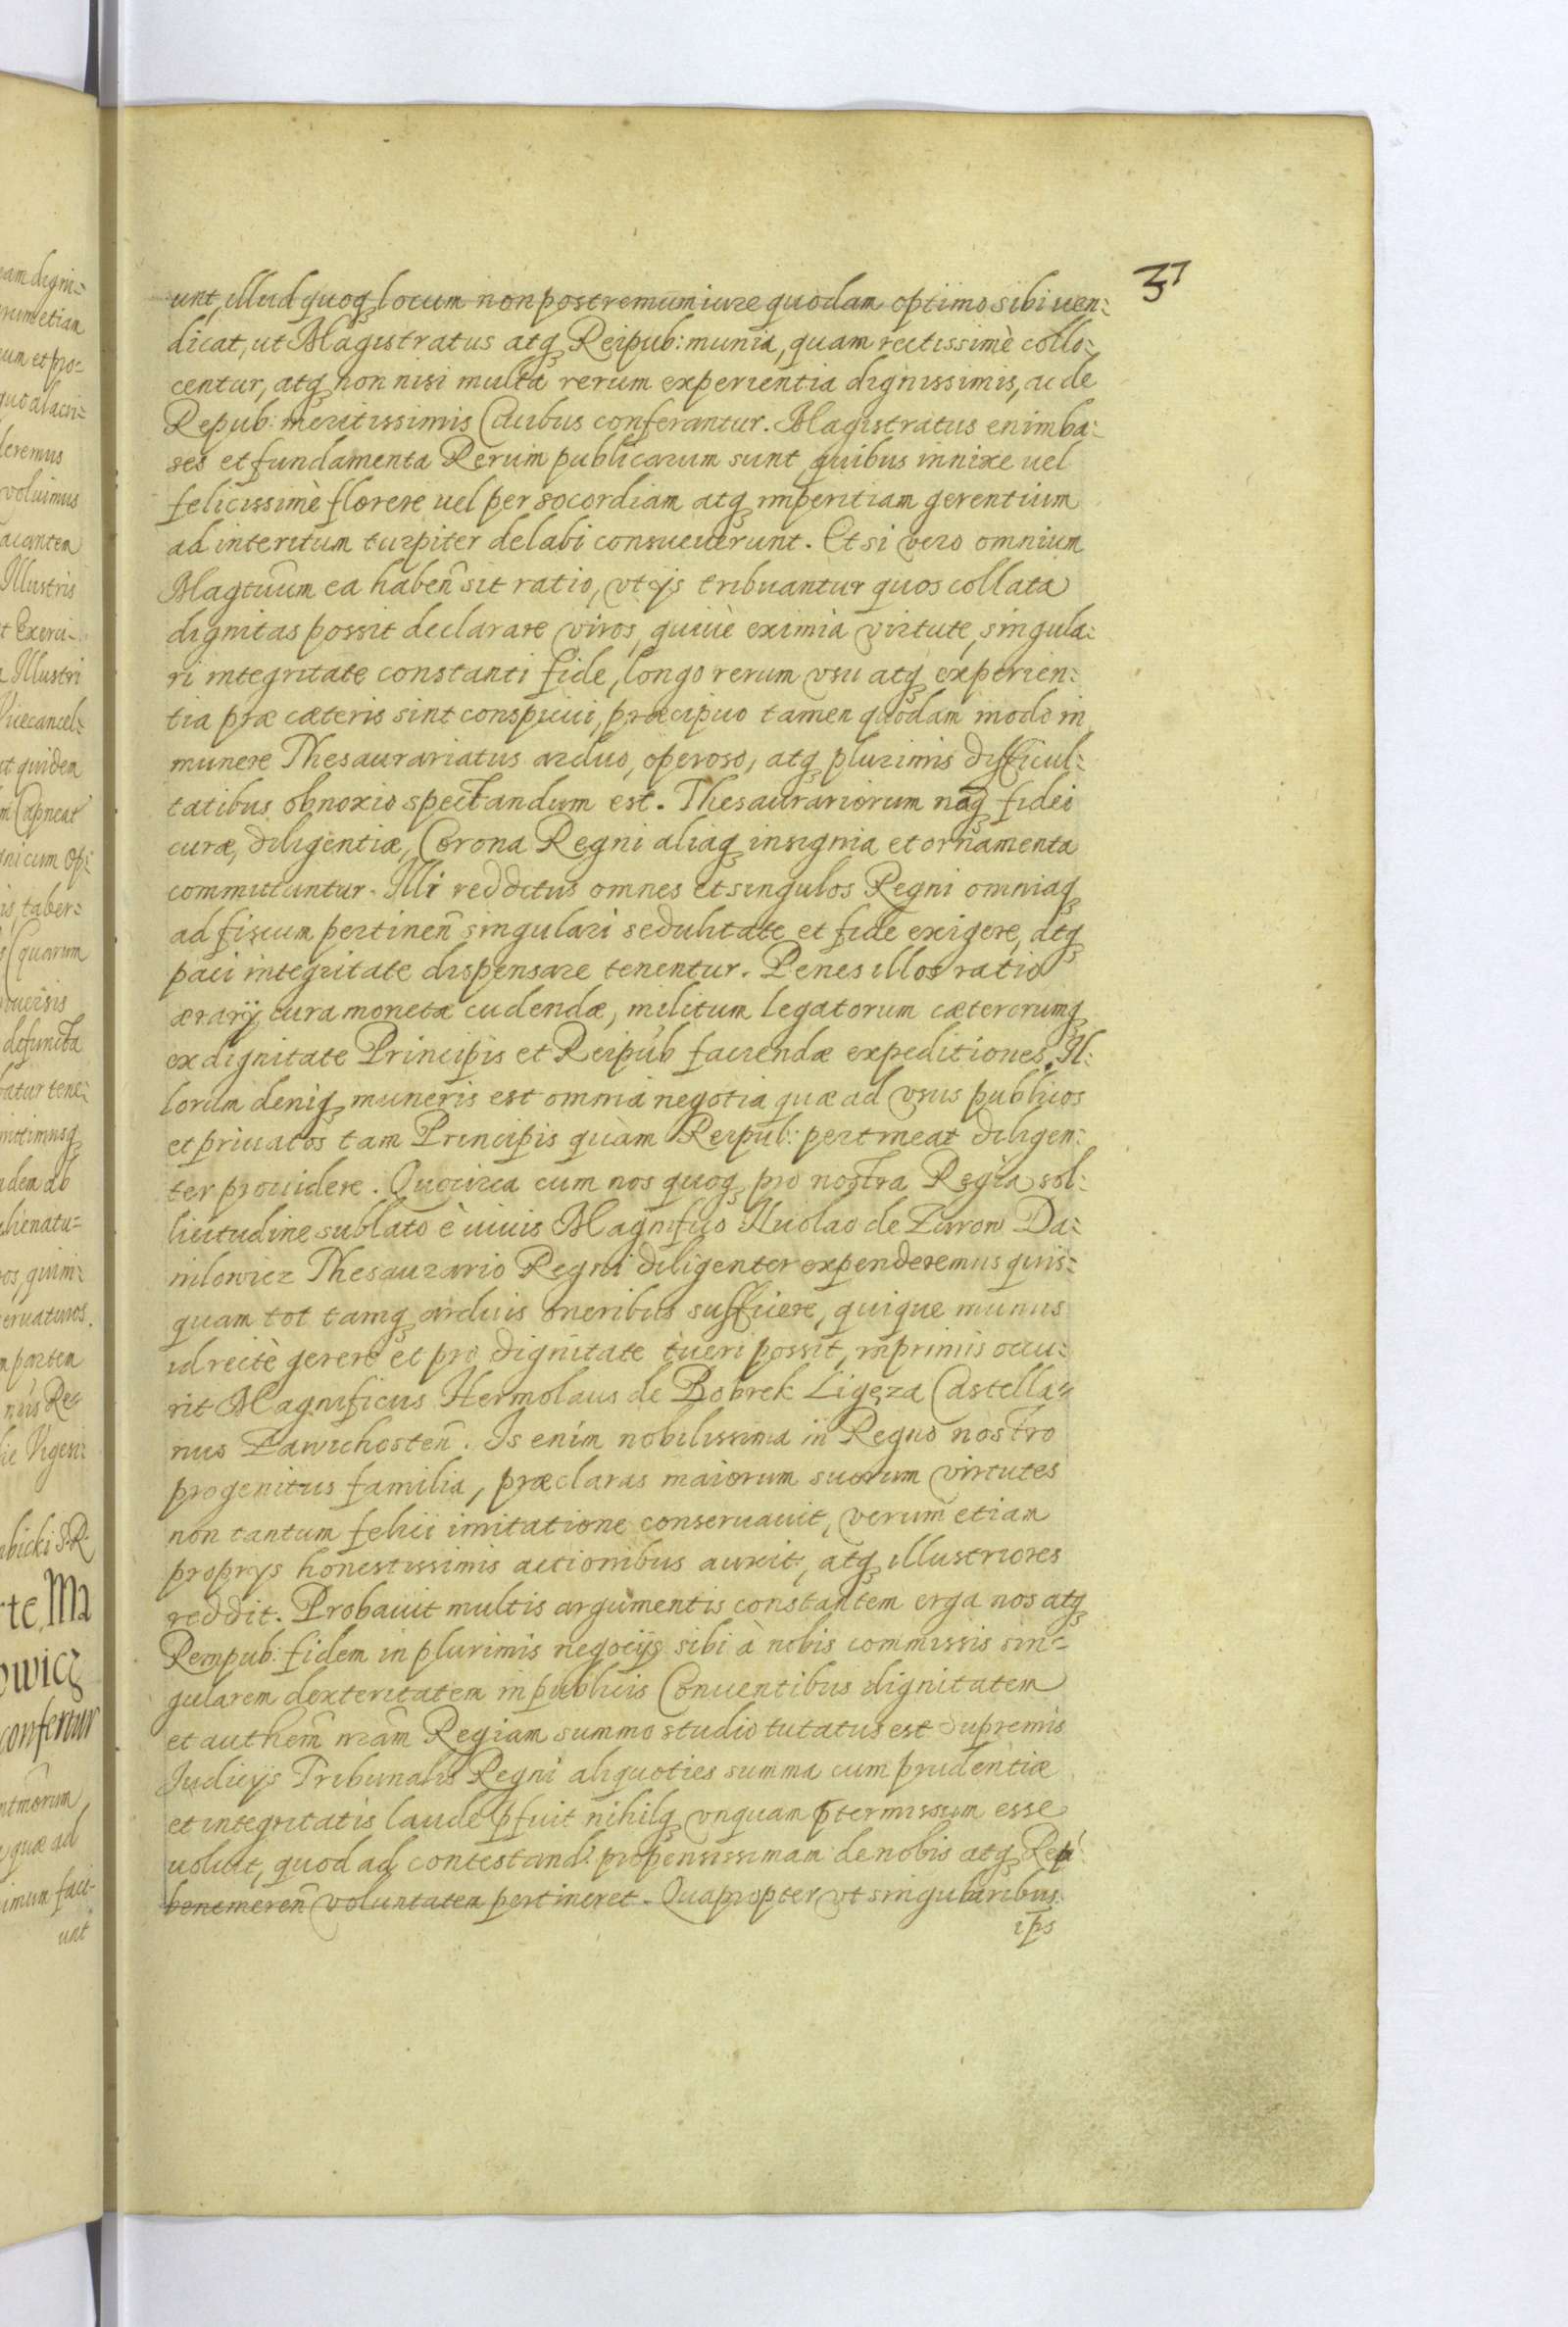 37
unt, illud quoq locum non postremum iure quodam optimo sibi uen:
dicat, ut Magistratus atq Reipub: munia, quam rectissimè collo:
centur, atq non nisi multa rerum experientia dignissimis, ac de
Repub: meritissimis Ciuibus conferantur. Magistratus enim ba:
ses et fundamenta Rerum publicarum sunt, quibus innixe uel
felicissimè florere uel per socordiam atq imperitiam gerentium
ad interitum turpiter delabi consueuerunt. Et si vero omnium
Magtuum ea haben̄ sit ratio, vt ijs tribuantur quos collata
dignitas possit declarare viros, quiuè eximia virtute, singula:
ri integritate constanti fide, longo rerum vsu atq experien:
tia præ cæteris sint conspicui, præcipuo tamen quodam modo in
munere Thesaurariatus arduo, operoso, atq plurimis difficul:
tatibus obnoxio spectandum est. Thesaurariorum naq fidei
curæ, diligentiæ, Corona Regni aliaq insignia et ornamenta
committuntur. Illi redditus omnes et singulos Regni omniaq
ad fiscum pertinen̄ singulari sedulitate et fide exigere, atq
paci integritate dispensare tenentur. Penes illos ratio
ærarij, cura monetæ cudendæ, militum legatorum cæterorumq
ex dignitate Principis et Reipub faciendæ expeditiones. Il:
lorum deniq muneris est omnia negotia quæ ad vsus publicos
et priuatos tam Principis quàm Reipub: pertineat diligen:
ter prouidere. Quocirca cum nos quoq pro nostra Regia sol:
licitudine sublato è viuis Magnifico Nicolao de Zurow Da:
nilowicz Thesaurario Regni diligenter expenderemus quis:
quam tot tamq arduis oneribus sufficere, quique munus
id rectè gerere et pro dignitate tueri possit, inprimis occu:
rit Magnificus Hermolaus de Bobrek Ligęza Castella=
nus Zawichosten̄. Is enim nobilissima in Regno nostro
progenitus familia, præclaras maiorum suorum virtutes
non tantum felici imitatione conseruauit, verum etiam
proprijs honestissimis actionibus auxit, atq illustriores
reddit. Probauit multis argumentis constantem erga nos atq
Rempub: fidem in plurimis negocijs sibi à nobis commissis sin=
gularem dexteritatem in publicis Conuentibus dignitatem
et authem̄ nram̄ Regiam summo studio tutatus est Supremis
Iudicijs Tribunalis Regni aliquoties summa cum prudentiæ
et integritatis laude pfuit nihilq vnquam ptermissum esse
uoluit, quod ad contestand: propensissimam de nobis atq Rep:
benemeren̄ voluntatem pertineret. Quapropter vt singularibus
ips
am digni=
rum etiam
um et pro:
leremus
voluimus
acantem
Illustris
t Exerci-
Illustri
Vicecancel:
ut quidem
nicum Op:
is, taber=
(quarum
defuncta
batur tene:
mittimusq
adem ab
alienatu=
os, quim:
eruaturos.
partem
Vigesi:
bicki S.R.
rte, M
owicz
confertur
quæ ad
imum faci-
unt